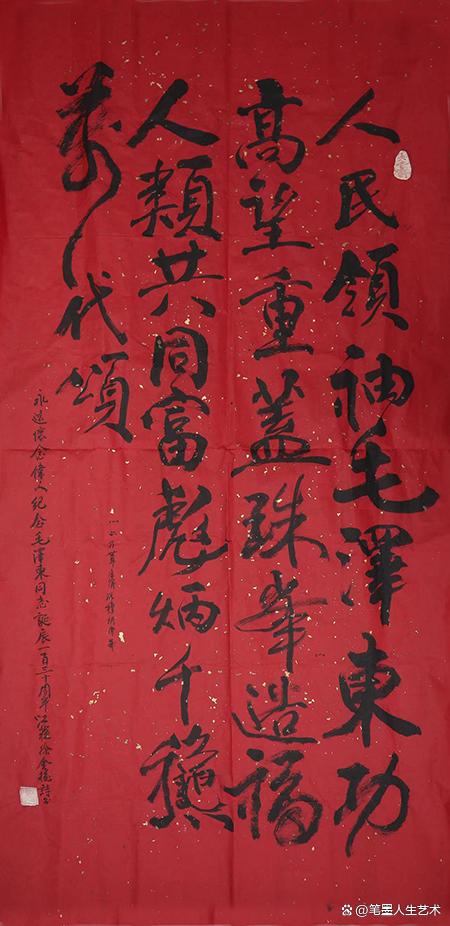 人民領袖毛澤東功
高望重蓋珠峯造福
人類共同富彪炳千穐
萬代頌
永遠懷念偉人紀念毛澤東同志誕辰一百三十周年江蘇徐金
@笔墨人生艺术